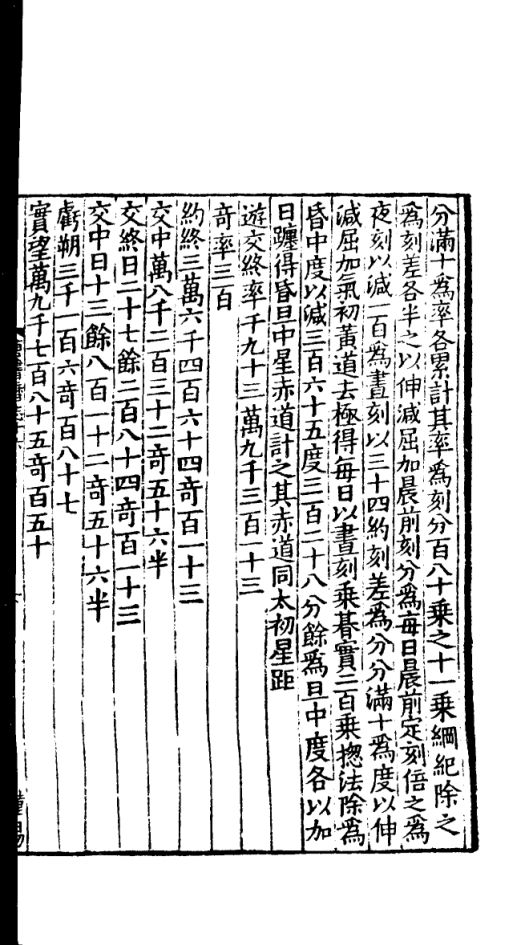 分滿十爲率各累計其率爲刻分百八十乘之十一乘綱紀除之
爲刻差各半之以伸減屈加晨前刻分爲每日晨前定刻倍之爲
夜刻以減一百爲晝刻以三十四約刻差爲分分滿十爲度以伸
減屈加氣初黃道去極得每日以晝刻乘朞實二百乘揔法除爲
昏中度以減三百六十五度三百二十八分餘爲旦中度各以加
日躔得昏旦中星赤道計之其赤道同太初星距
遊交終率千九十三萬九千三百一十三
奇率三百
約終三萬六千四百六十四奇百一十三
交中萬八千二百三十二奇五十六半
交終日二十七餘二百八十四奇百一十三
交中日十三餘八百一十二奇五十六半
虧朔三千一百六奇百八十七
實望萬九千七百八十五奇百五十